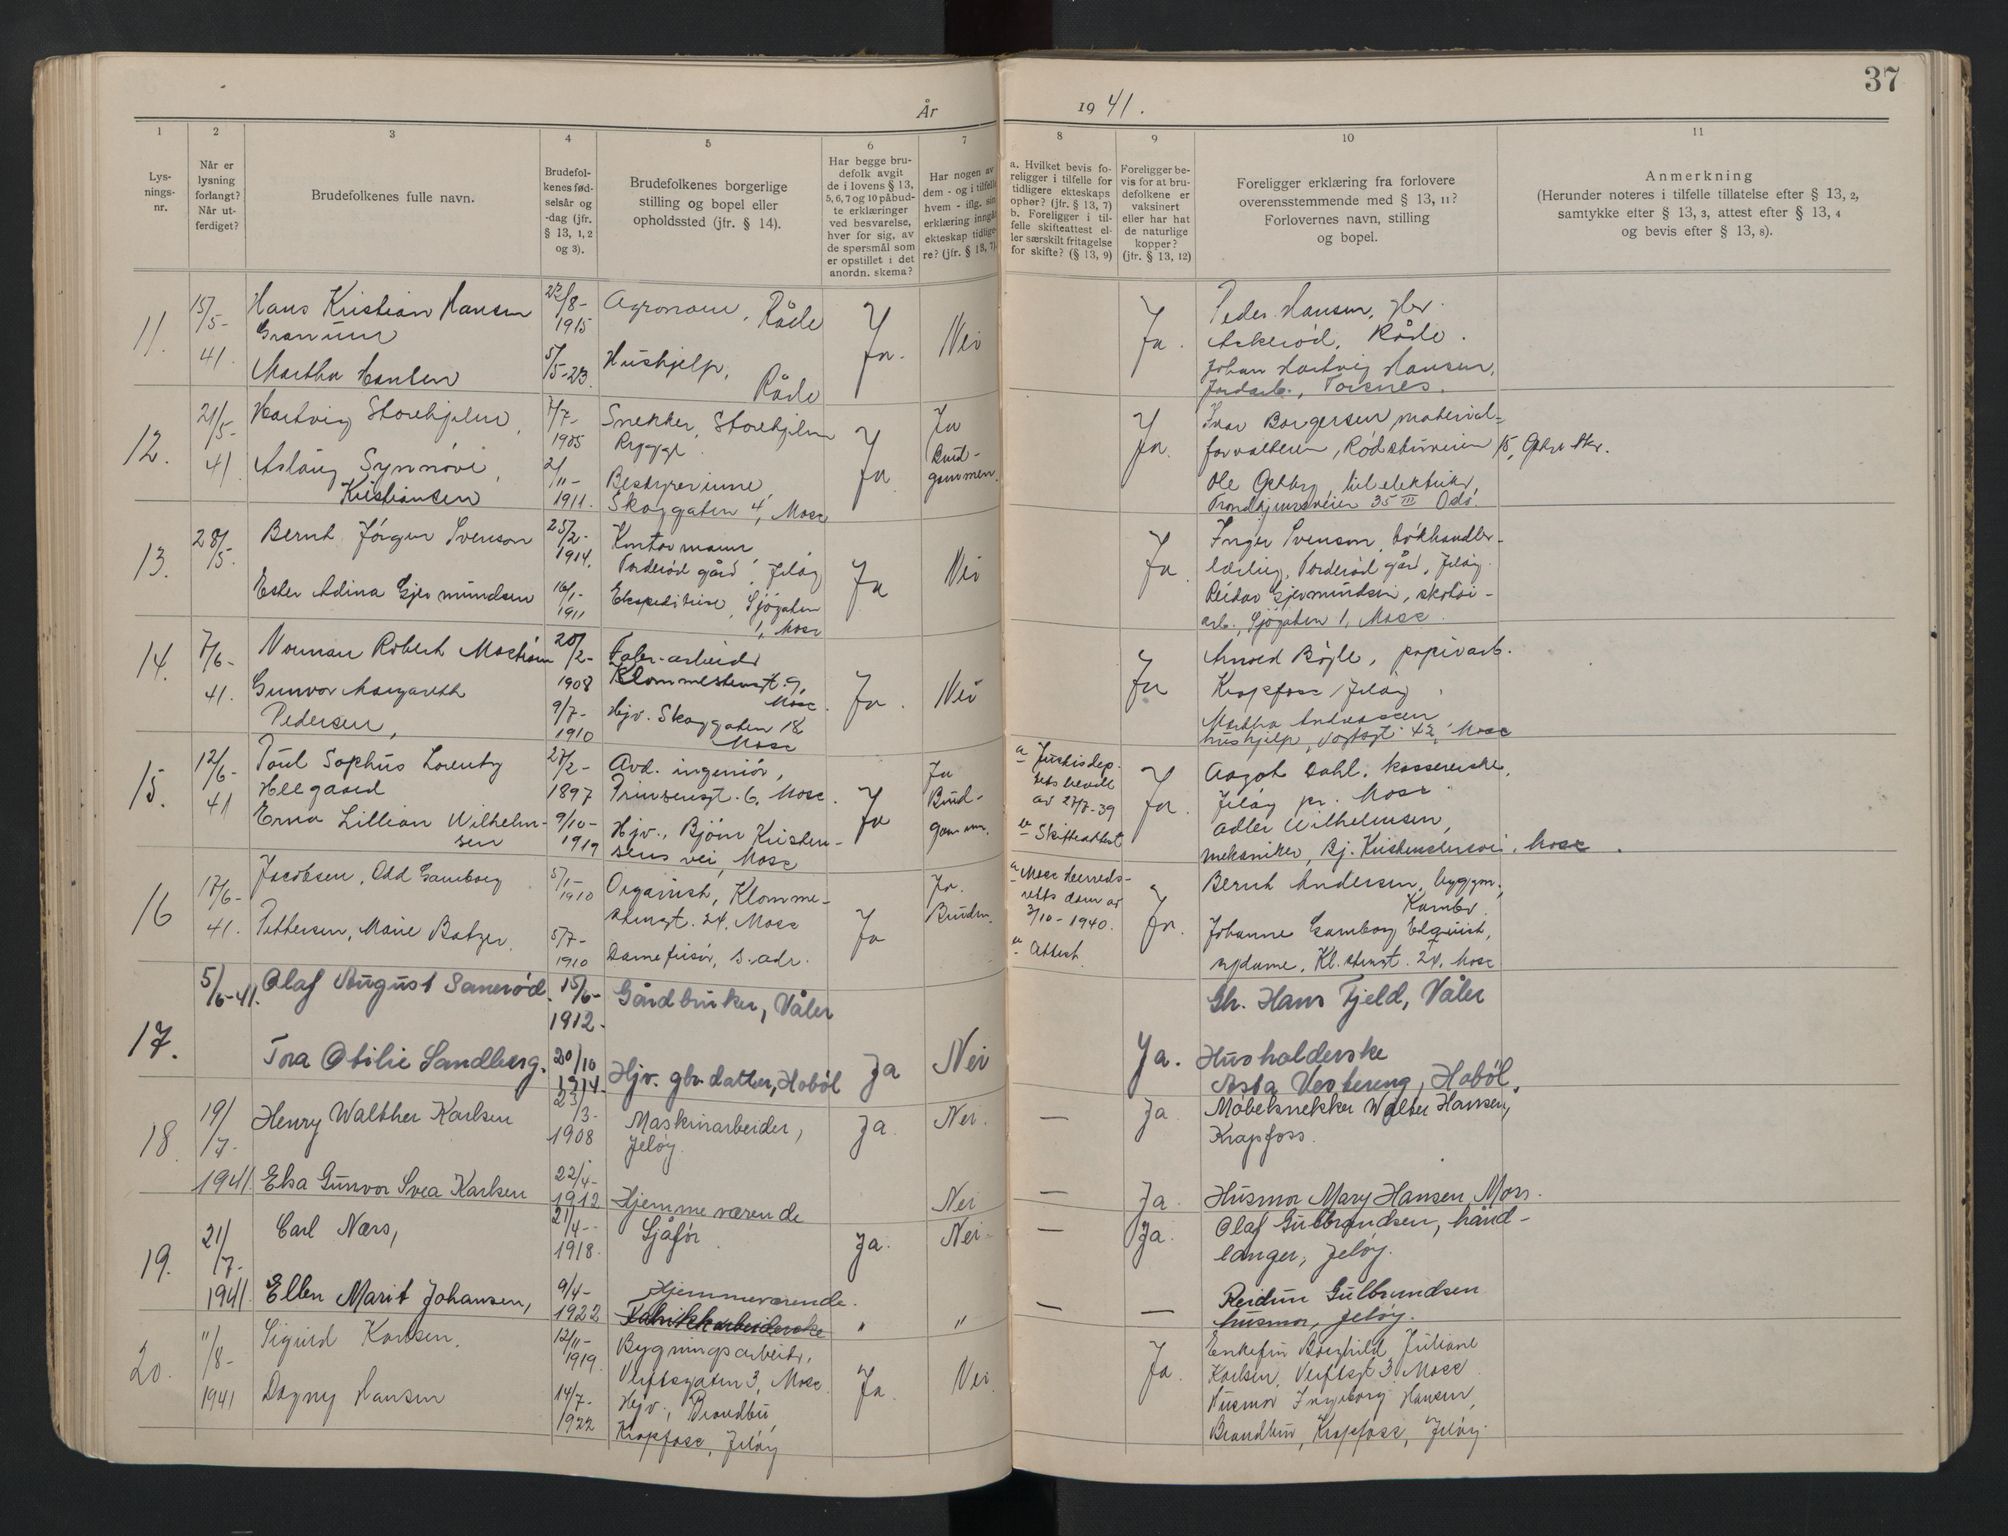 37
År 1941.
1 2 3 4 5 6 7 8 9 10 11
Lysnings-
nr.
Når er
lysning
forlangt?
Når ut-
ferdiget?
Brudefolkenes fulle navn.
Brudefol-
kenes fød-
selsår og
-dag (jfr.
§ 13, 1, 2
og 3).
Brudefolkenes borgerlige
stilling og bopel eller
opholdssted (jfr. § 14).
Har begge bru-
defolk avgit
de i lovens § 13,
5, 6, 7 og 10 påbud-
te erklæringer
ved besvarelse,
hver for sig, av
de spørsmål som
er opstillet i det
anordn. skema?
Har nogen av
dem - og i tilfelle
hvem - iflg. sin
erklæring inngått
ekteskap tidlige-
re? (jfr. § 13, 7).
a. Hvilket bevis fo-
religger i tilfelle for
tidligere ekteskaps
ophør? (jfr. § 13, 7)
b. Foreligger i til-
felle skifteattest el-
ler særskilt fritagelse
for skifte? (§ 13, 9)
Foreligger be-
vis for at bru-
defolkene er
vaksinert
eller har hat
de naturlige
kopper?
(jfr. § 13, 12)
Foreligger erklæring fra forlovere
overensstemmende med § 13, 11?
Forlovernes navn, stilling
og bopel.
Anmerkning
(Herunder noteres i tilfelle tillatelse efter § 13, 2,
samtykke efter § 13, 3, attest efter § 13, 4
og bevis efter § 13, 8).
11. 15/5- 41.
Hans Kristian Hansen
Granum
22/8-
1915
Agronom, Råde
Martha Hansen
5/5-23.
Hushjelp,
Råde
Ja. Nei Ja.
Peder Hansen,
Askerød, Råde.
Johan Hartvig Hansen,
Jordarb., Torsnes.
12. 21/5- 41
Hartvig Storehjelm,
7/7-
1905
Snekker, Storehjelm
Rygge.
Aslaug Synnøve
Kristiansen
2/11-
1911.
Bestyrerinne,
Skoggaten 4, Moss
Ja
Ja
Brud-
gommen.
Ja.
Ivar Borgersen material-
forvalteren, Rødstuveien 15,
Ole Østby,
Trondhjemsveien 35 III Oslo.
13. 28/5-
Bernt Jørgen Svenson
25/2-
1914.
Kontormann,
Torderød gård, Jeløy
Ester Adina Gjermundsen
16/1-
1911
Ekspeditrise, Sjøgaten
1, Moss
Ja Nei Ja.
Inger Svenson, bokhandler-
lærling, Torderød gård, Jeløy.
Reidar Gjermundsen, skotøi-
arb., Sjøgaten 1, Moss.
14. 7/6- 41.
Norman Robert
20/2-
1908
Fabr.-arbeider
Klommestensgt. 9,
Moss.
Gunvor Margareth
Pedersen,
9/7-
1910
Hjv. Skoggaten 18
Moss
Ja. Nei Ja
Arnold Bøyle, papirarb.
Krapfoss, Jeløy.
Martha Andreassen
hushjelp, Vogtsgt. 42, Moss
15. 12/6- 41
Poul Sophus Lorentz
Heegaard
27/2-
1897
Avd. ingeniør,
Prinsensgt. 6, Moss.
Erna Lillian Wilhelm-
sen
9/10-
1919
Hjv., Bjørn Kristen-
sens vei, Moss
Ja
Ja
Brud-
gommen.
a Justisdep-
tets bevill.
av 27/7-39
b Skifteattest
Ja.
Aagot Dahl, kassererske,
Jeløy pr. Moss.
Adler Wilhelmsen,
mekaniker, Bj. Kristensensvei, Moss.
16 17/6- 41.
Jacobsen, Odd Gamborg
5/1-
1910
Organist, Klomme-
stensgt. 24. Moss
Pettersen, Marie Batzer.
5/7-
1910
Damefrisør, s. adr.
Ja
Ja.
Brudgm.
a Moss herreds-
retts dom av
3/10-1940.
b Attest.
Ja.
Bernt Andersen, byggm.,
Kambo.
Johanne Gamborg Edquist,
Kl.stensgt. 24, Moss
17. 5/6-41.
Olaf August Sanerød.
15/6-
1912.
Gårdbruker, Våler
Tora Otilie Sandberg.
20/10
1914.
Hjv. gbr. datter, Hobøl
Ja Nei Ja.
Gbr. Hans Fjeld, Våler
Husholderske
Asta Vestereng, Hobøl.
18. 19/7- 1941.
Henry Walther Karlsen
23/3-
1908
Maskinarbeider,
Jeløy.
Ja. Nei. — Ja.
Møbelsnekker Walter Hansen,
Krapfoss.
Elsa Gunvor Svea Karlsen
22/4-
1912
Hjemmeværende
Nei — Ja.
Husmor Mary Hansen, Moss.
19. 21/7- 1941.
Carl Næss,
21/4-
1918.
Sjåfør.
Ja. Nei. — Ja.
Olaf Gulbrandsen, hånd-
langer, Jeløy.
Ellen Marit Johansen,
9/4-
1922
Hjemmeværende.
Fabrikkarbeiderske
" " — —
Reidun Gulbrandsen
husmor, Jeløy.
20. 11/8- 1941
Sigurd Karlsen.
12/11-
1919.
Bygningsarbeider,
Verftsgaten 3, Moss.
Dagny Hansen
14/7-
1922
Hjv., Brandbu,
Krapfoss, Jeløy
Ja. Nei. Ja.
Enkefru Borghild Juliane
Karlsen, Verftsgt. 3. Moss
Husmor Ingeborg Hansen,
Brandbu, Krapfoss, Jeløy.